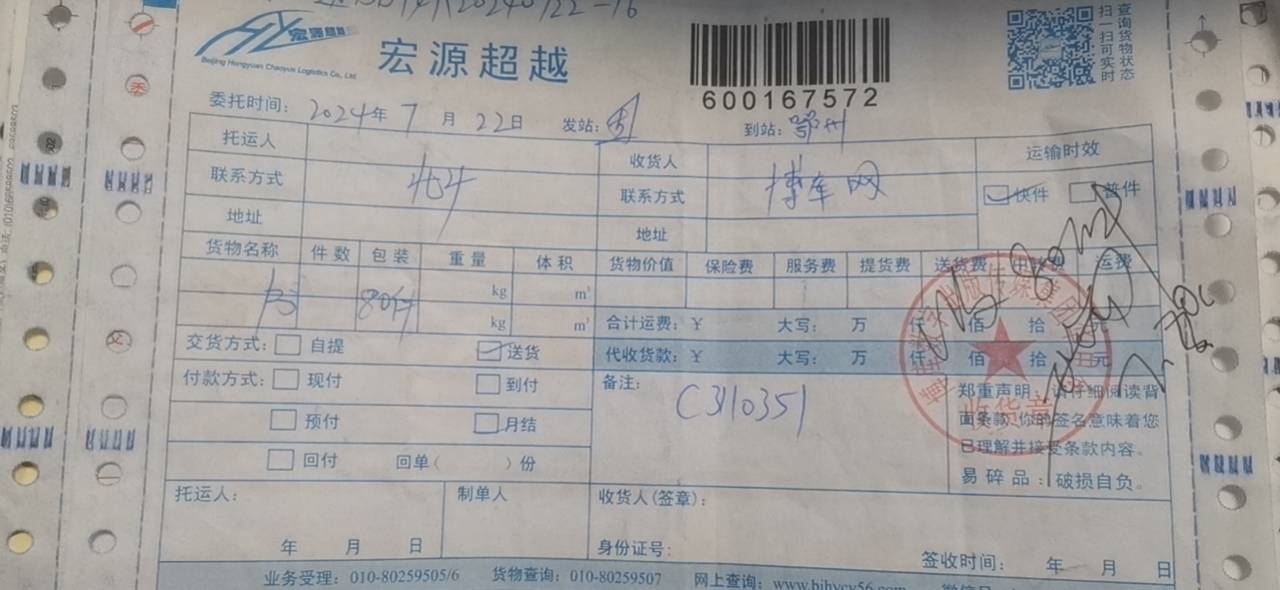 宏源超越
Beijing Hongyuan Chaoyue Logistics Co., Ltd.
宏源超越
600167572
查询货物状态
扫一扫可实时
委托时间: 2024年 7月 22日 发站: 到站: 鄂州
托运人 收货人 运输时效
联系方式 联系方式 博车网 快件 普件
地址 地址
货物名称 件数 包装 重量 体积 货物价值 保险费 服务费 提货费 送货费 运费
kg m³
kg m³ 合计运费: ¥ 大写: 万 仟 佰 拾 元
交货方式: 自提 送货 代收货款: ¥ 大写: 万 仟 佰 拾 元
付款方式: 现付 到付 备注: C3110351
预付 月结
回付 回单( )份
郑重声明: 请仔细阅读背
面条款,你的签名意味着您
已理解并接受条款内容。
易碎品: 破损自负。
收货章
托运人: 制单人 收货人(签章):
年 月 日 身份证号: 签收时间: 年 月 日
业务受理: 010-80259505/6 货物查询: 010-80259507 网上查询: www.bjhycy56.com